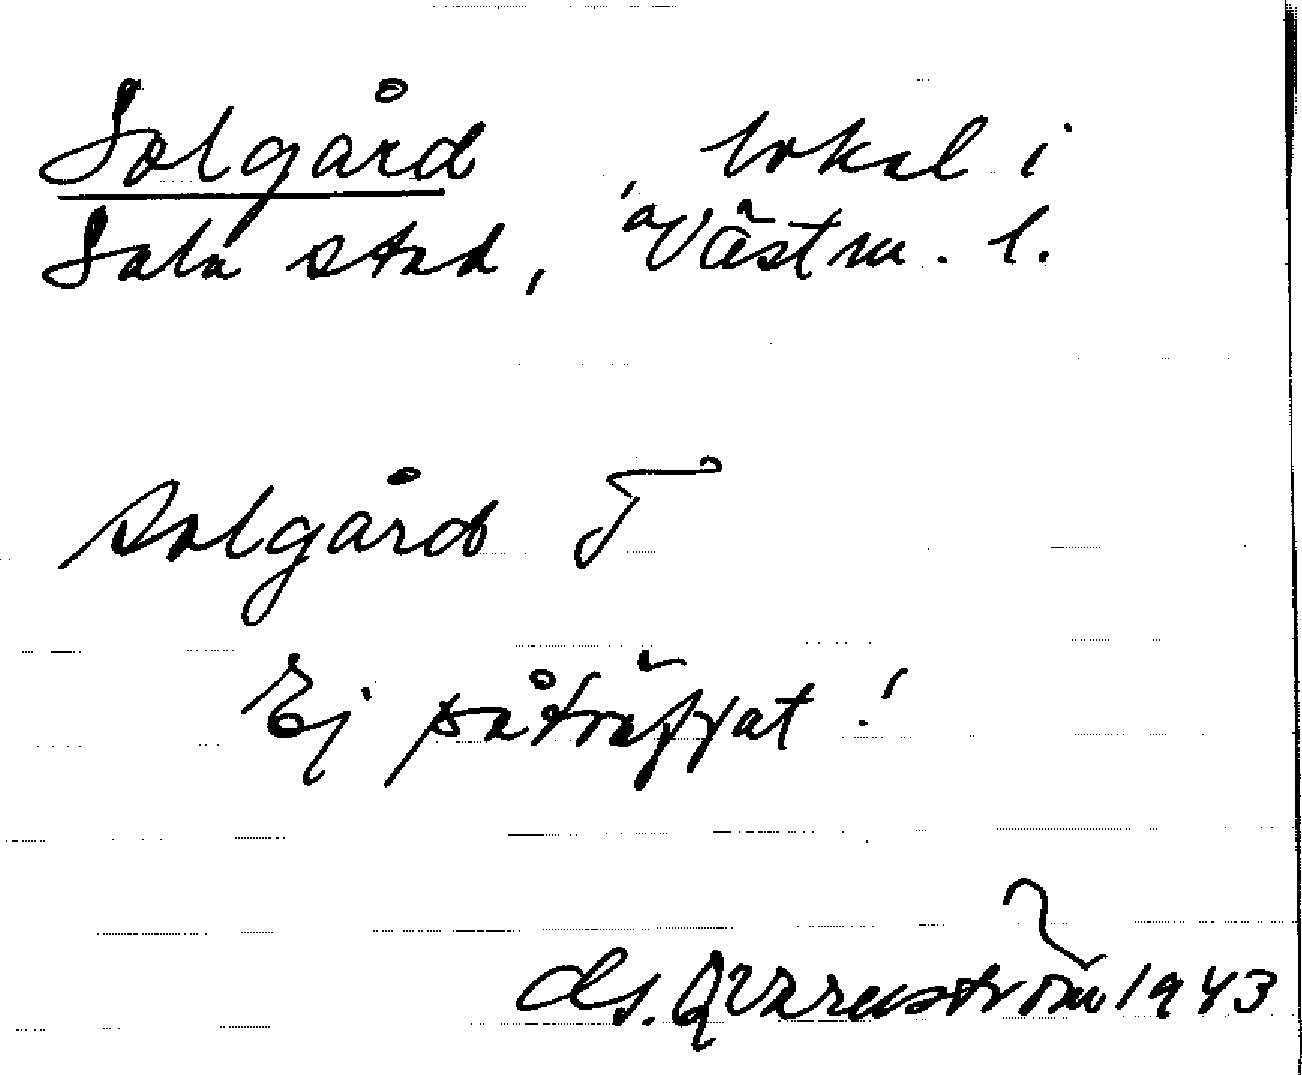 Solgård, lokal i
Sala stad, Västm. l.
solgård T
Ej påträffat!
Qvarnström 1943